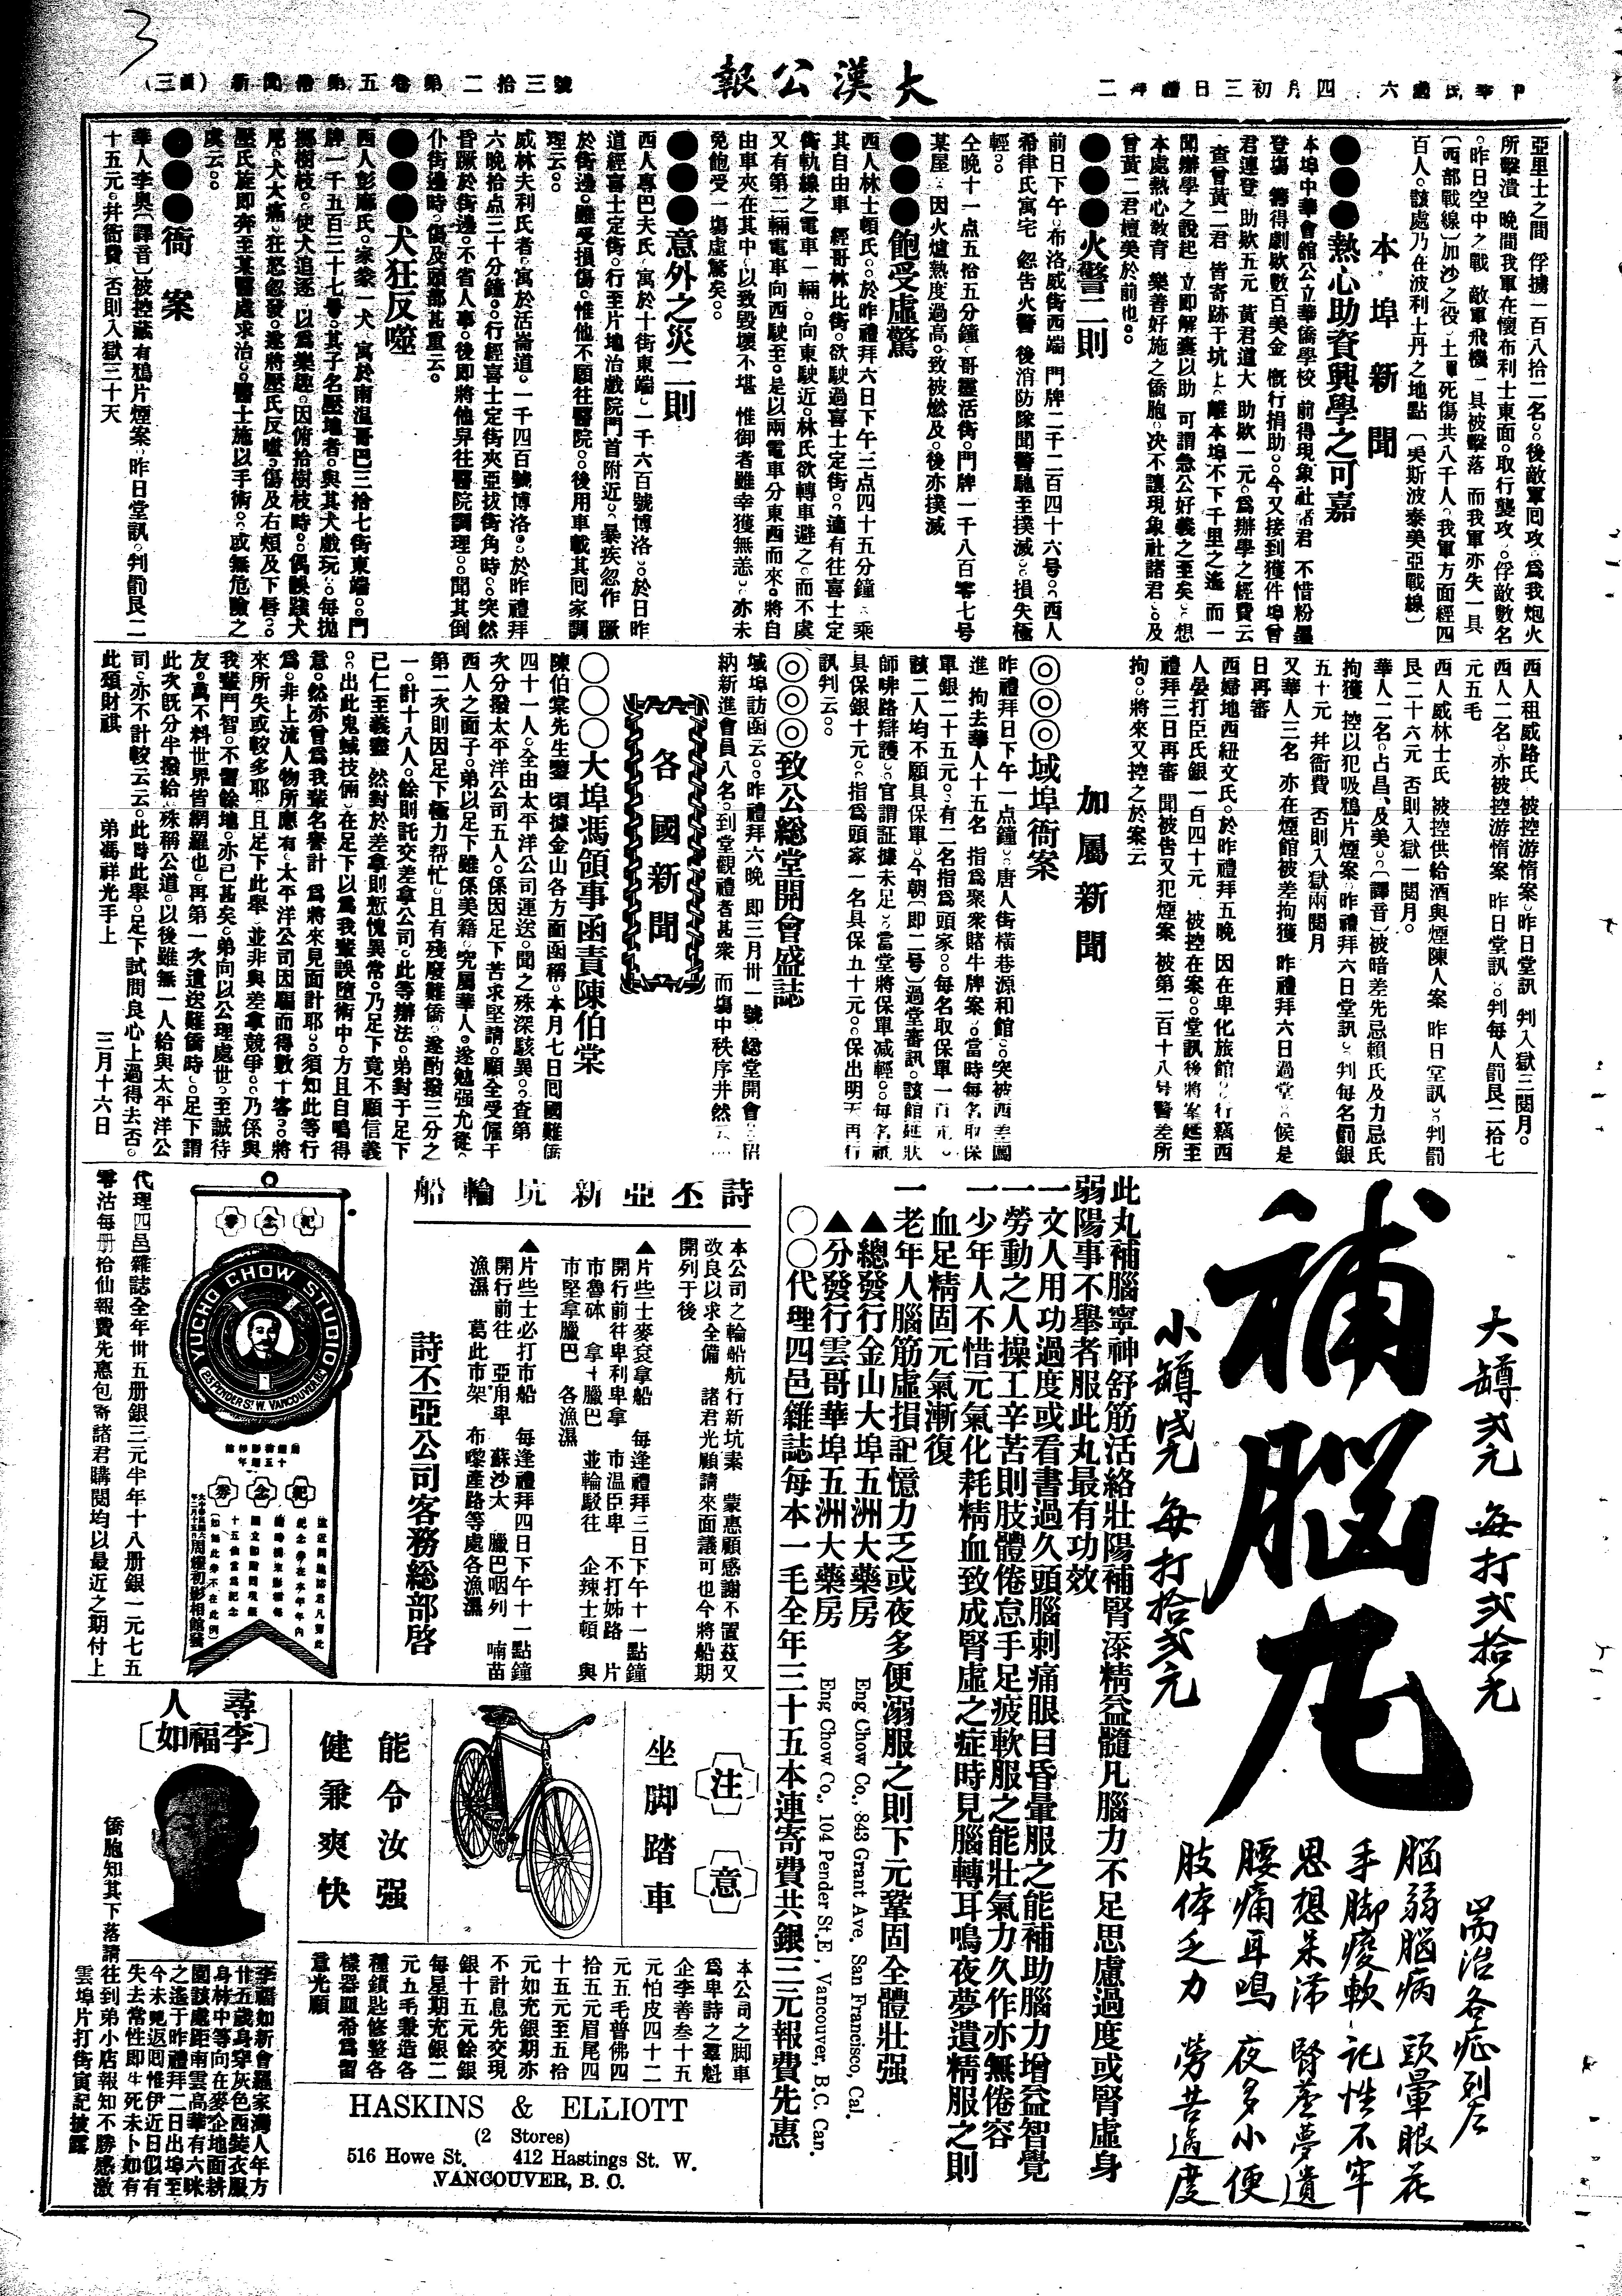 大漢公報
亞里士之間　俘擄一百八拾二名。後敵軍囘攻。爲我炮火
所擊潰　晚間我軍在懷布利士東面。取行襲攻。俘敵數名
。昨日空中之戰　敵軍飛機一具被擊落　而我軍亦失一具
百人。該處乃在波利士丹之地點
本埠新聞
●●●熱心助資興學之可嘉
本埠中華會館公立華僑學校　前得現象社諸君　不惜粉墨
登塲　籌得劇欵數百美金　慨行捐助。今又接到獲件埠曾
君連登　助欵五元　黃君道大　助欵一元。爲辦學之經費云
查曾黃二君　皆寄跡于坑上。離本埠不下千里之遙　而一
聞辦學之說起　立即解囊以助　可謂急公好義之至矣。想
本處熱心敎育　樂善好施之僑胞。决不讓現象社諸君。及
曾黃二君擅美於前也。
●●●火警二則
前日下午。布洛威街西端　門牌二千二百四十六号。西人
希律氏寓宅　忽告火警　後消防隊聞警馳至撲滅。損失極
輕。
仝晚十一点五拾五分鐘。哥靈活街。門牌一千八百零七号
某屋　因火爐熱度過高。致被燃及。後亦撲滅
●●●飽受虛驚
西人林士頓氏。於昨禮拜六日下午三点四十五分鐘　乘
其自由車　經哥林比街。欲駛過喜士定街。適有往喜士定
街軌線之電車一輛。向東駛近。林氏欲轉車避之。而不虞
又有第二輛電車向西駛至。是以兩電車分東西而來。將自
由車夾在其中。以致毀壞不堪　惟御者雖幸獲無恙。亦未
免飽受一塲虛驚矣。
●●●意外之災二則
西人專巴夫氏　寓於十街東端。一千六百號博洛。於日昨
道經喜士定街。行至片地治戲院門首附近。暴疾忽作　蹶
於街邊。雖受損傷。惟他不願往醫院。後用車載其囘家調
理云。
威林夫利氏者。寓於活崙道。一千四百號博洛。於昨禮拜
六晚拾点三十分鐘。行經喜士定街夾亞拔街角時。突然
昏蹶於街邊。不省人事。後即將他舁往醫院調理。聞其倒
仆街邊時。傷及頭部甚重云。
●●●犬狂反噬
西人彭廲氏。家蓄一犬　寓於南温哥巴三拾七街東端。門
牌一千五百三十七号。其子名壓地者。與其犬戲玩。每拋
擲樹枝。使犬追逐　以爲樂趣。因俯拾樹枝時。偶誤踐犬
尾。犬大痛。狂怒忽發。遂將壓氏反噬。傷及右頰及下唇。
壓氏旋即奔至某醫處求治。醫士施以手術。或無危險之
虞云。
●●●衙案
華人李奥〔譯音〕被控藏有鴉片煙案。昨日堂訊。判罰艮二
十五元。幷衙費　否則入獄三十天
西人租威路氏　被控游惰案。昨日堂訊　判入獄三閱月。
西人二名　亦被控游惰案　昨日堂訊。判每人罰艮二拾七
元五毛
西人威林士氏　被控供給酒與煙陳人案　昨日堂訊。判罰
艮二十六元　否則入獄一閱月。
華人二名。占昌、及美。〔譯音〕被暗差先忌賴氏及力忌氏
拘獲　控以犯吸鴉片煙案。昨禮拜六日堂訊。判每名罰銀
五十元　幷衙費　否則入獄兩閱月
又華人三名　亦在煙館被差拘獲　昨禮拜六日過堂　候是
日再審
西婦地西紐文氏。於昨禮拜五晚　因在卑化旅館。行竊西
人晏打臣氏銀一百四十元　被控在案。堂訊後將案延至
禮拜三日再審　聞被告又犯煙案　被第二百十八号警差所
拘。將來又控之於案云
加屬新聞
◎◎◎域埠衙案
昨禮拜日下午一点鐘。唐人街橫巷源和館。突被西差圍
進　拘去華人十五名　指爲聚衆賭牛牌案。當時每名取保
單銀二十五元。有二名指爲頭家。每名取保單一百元
該二人均不願具保單。今朝〔即二号〕過堂審訊。該館延狀
師啡路辯護。官謂証據未足。當堂將保單減輕。每名祇
具保銀十元。指爲頭家一名具保五十元。保出明天再行
訊判云。
◎◎◎致公総堂開會盛誌
域埠訪函云。昨禮拜六晚　即三月卅一號　総堂開會　招
納新進會員八名。到堂觀禮者甚衆　而塲中秩序井然云
各國新聞
〇〇〇大埠馮領事函責陳伯棠
陳伯棠先生鑒　頃據金山各方面函稱。本月七日囘國難僑
四十一人。全由太平洋公司運送。聞之殊深駭異。查第一
次分撥太平洋公司五人。係因足下苦求堅請。願全受僱于
西人之面子。弟以足下雖係美籍。究屬華人。遂勉强允從。
第二次則因足下極力帮忙。且有殘廢難僑。遂酌撥三分之
一。計十八人。餘則託交差拿公司。此等辦法。弟對于足下
已仁至義盡　然對於差拿則慙愧異常。乃足下竟不願信義
。出此鬼蜮技倆。在足下以爲我輩誤墮術中。方且自鳴得
意。然亦曾爲我輩名譽計　爲將來見面計耶。須知此等行
爲。非上流人物所應有。太平洋公司因騙而得數十客。將
來所失或較多耶。且足下此舉。並非與差拿競爭。乃係與
我輩鬥智。不留餘地。亦已甚矣。弟向以公理處世。至誠待
友。萬不料世界皆網羅也。再第一次遣送難僑時。足下謂
此次旣分半撥給。殊稱公道。以後雖無一人給與太平洋公
司。亦不計較云云。此時此舉。足下試問良心上過得去否。
此頌財祺　弟馮祥光手上　三月十六日
補腦丸
大罇弍元　每打弍拾元
小罇壹元　每打拾弍元
耑治各症列左
腦弱腦病　頭暈眼花
手脚痠軟　記性不牢
思想呆滯　腎虛夢遺
腰痛耳鳴　夜多小便
肢体乏力　勞苦過度
此丸補腦寧神舒筋活絡壯陽補腎添精益髓凡腦力不足思慮過度或腎虛身
弱陽事不舉者服此丸最有功效
一文人用功過度或看書過久頭腦刺痛眼目昏暈服之能補助腦力增益智覺
一勞動之人操工辛苦則肢體倦怠手足疲軟服之能壯氣力久作亦無倦容
一少年人不惜元氣化耗精血致成腎虛之症時見腦轉耳鳴夜夢遺精服之則
血足精固元氣漸復
一老年人腦筋虛損記憶力乏或夜多便溺服之則下元鞏固全體壯强
▲總發行金山大埠五洲大藥房　Eng Chow Co., 843 Grant Ave. San Francisco, Cal.
▲分發行雲哥華埠五洲大藥房　Eng Chow Co., 104 Pender St. E, Vancouver, B.C. Can.
〇〇代理四邑雜誌每本一毛全年三十五本連寄費共銀三元報費先惠
詩丕亞新坑輪船
本公司之輪船航行新坑素　蒙惠顧感謝不置茲又
改良以求全備　諸君光顧請來面議可也今將船期
開列于後
▲片些士麥袞拿船　每逢禮拜三日下午十一點鐘
開行前往卑利卑拿　市温臣卑　不打姊路　片
市魯砵　拿士臘巴　並輪駁往　企辣士頓　與
市堅拿臘巴　各漁濕
▲片些士必打市船　每逢禮拜四日下午十一點鐘
開行前往　亞甪卑　蘇沙太　臘巴咽列　喃苗
漁濕　葛此市架　布嚟產路等處各漁濕
詩丕亞公司客務総部啓
紀念券
YUCHO CHOW STUDIO
125 PENDER ST. W. VANCOUVER, B.C.
紀念券
代理四邑雜誌全年卅五册銀三元半年十八册銀一元七五
零沽每册拾仙報費先惠包寄諸君購閱均以最近之期付上
注意
坐脚踏車
能令汝强
健兼爽快
本公司之脚車
爲卑詩之羣魁
企李善叁十五
元怕皮四十二
元五毛普佛四
拾五元眉尾四
十五元至五拾
元如充銀期亦
不計息先交現
銀十五元餘銀
每星期充銀二
元五毛兼造各
種鎖匙修整各
樣器皿希爲留
意光顧
HASKINS & ELLIOTT
(2 Stores)
516 Howe St. 412 Hastings St. W.
VANCOUVER, B. C.
尋人
〔李福如〕
李福如新會羅家灣人年方
廿五歲身穿灰色西裝衣服
身林中等向在麥企地面耕
園該處距南雲高華有六咪
之遙于昨禮拜二日出埠至
今未見返囘惟伊近日似有
失去常性即生死未卜如有
僑胞知其下落請往到弟小店報知不勝感激
雲埠片打街寅記披露